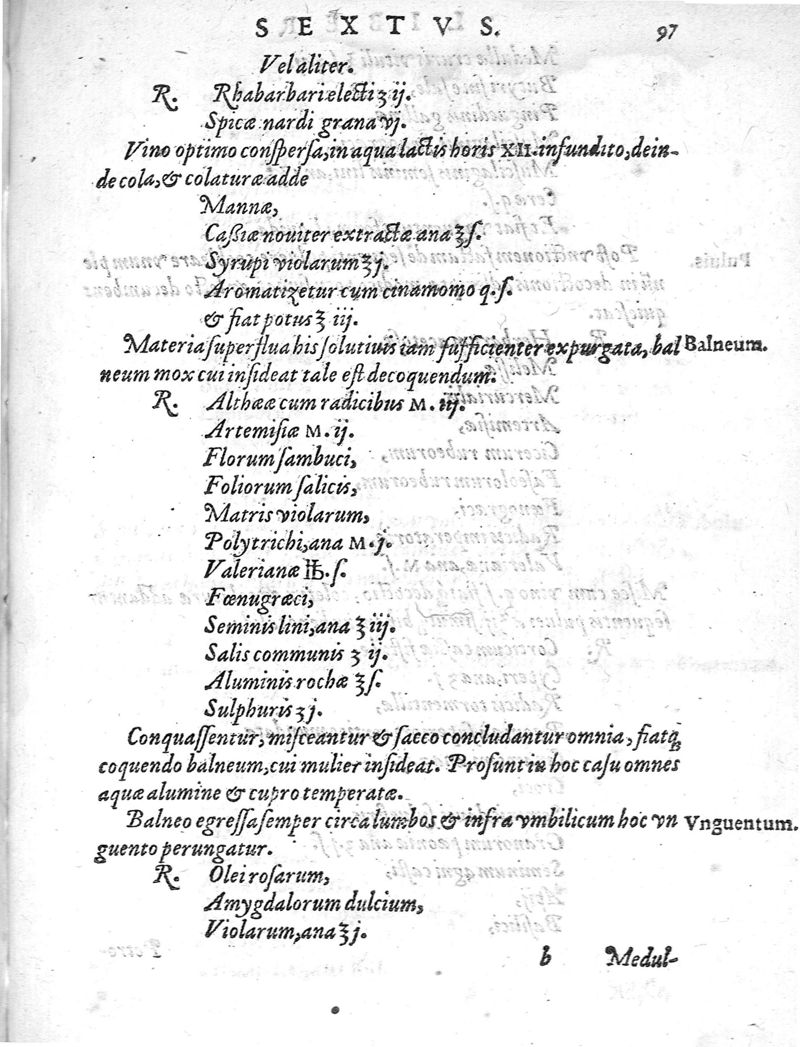 S E X T V S. 97
Vel aliter.
R. Rhabarbari electi ʒ ij.
Spicæ nardi grana vj.
Vino optimo conſperſa, in aqua lactis horis XII. infundito, dein-
de cola, & colaturæ adde
Mannæ,
Caſsiæ nouiter extractæ ana ℥ ſ.
Syrupi violarum ℥ j.
Aromatizetur cum cinamomo q. ſ.
& fiat potus ℥ iii.
Materia ſuperflua his ſolutiuis iam ſufficienter expurgata, bal Balneum.
neum mox cui inſideat tale eſt decoquendum.
R. Altheæ cum radicibus M. iij.
Artemiſiæ M. ij.
Florum ſambuci,
Foliorum ſalicis,
Matris violarum,
Polytrichi, ana M. j.
Valerianæ ℔. ſ.
Fœnugræci,
Seminis lini, ana ℥ iij.
Salis communis ʒ ij.
Aluminis rochæ ℥ ſ.
Sulphuris ʒ j.
Conquaſſentur, miſceantur & ſacco concludantur omnia, fiatq;
coquendo balneum, cui mulier inſideat. Proſunt in hoc caſu omnes
aquæ alumine & cupro temperatæ.
Balneo egreſſa ſemper circa lumbos & infra vmbilicum hoc vn Vnguentum.
guento perungatur.
R. Olei roſarum,
Amygdalorum dulcium,
Violarum, ana ℥ j.
b Medul-